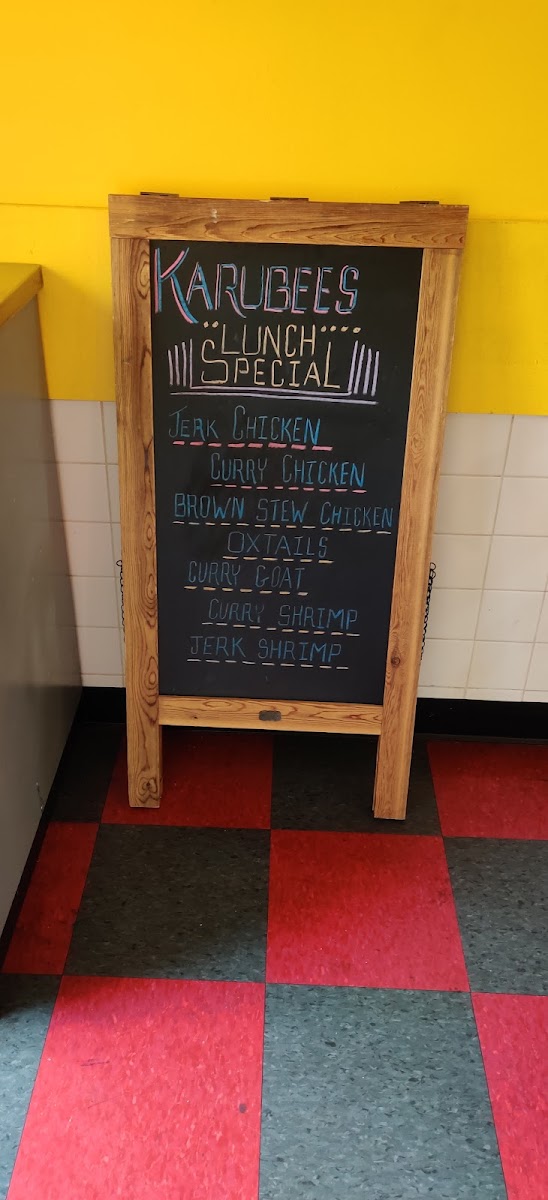 KARUBEES
LUNCH
SPECIAL
JERK CHICKEN
CURRY CHICKEN
BROWN STEW CHICKEN
OXTAILS
CURRY GOAT
CURRY SHRIMP
JERK SHRIMP